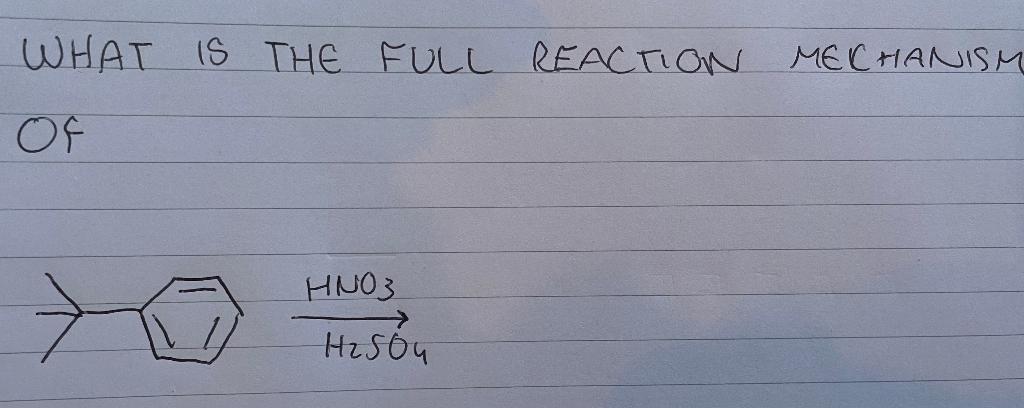 WHAT IS THE FULL REACTION MECHANISM
OF
HNO3
H2SO4